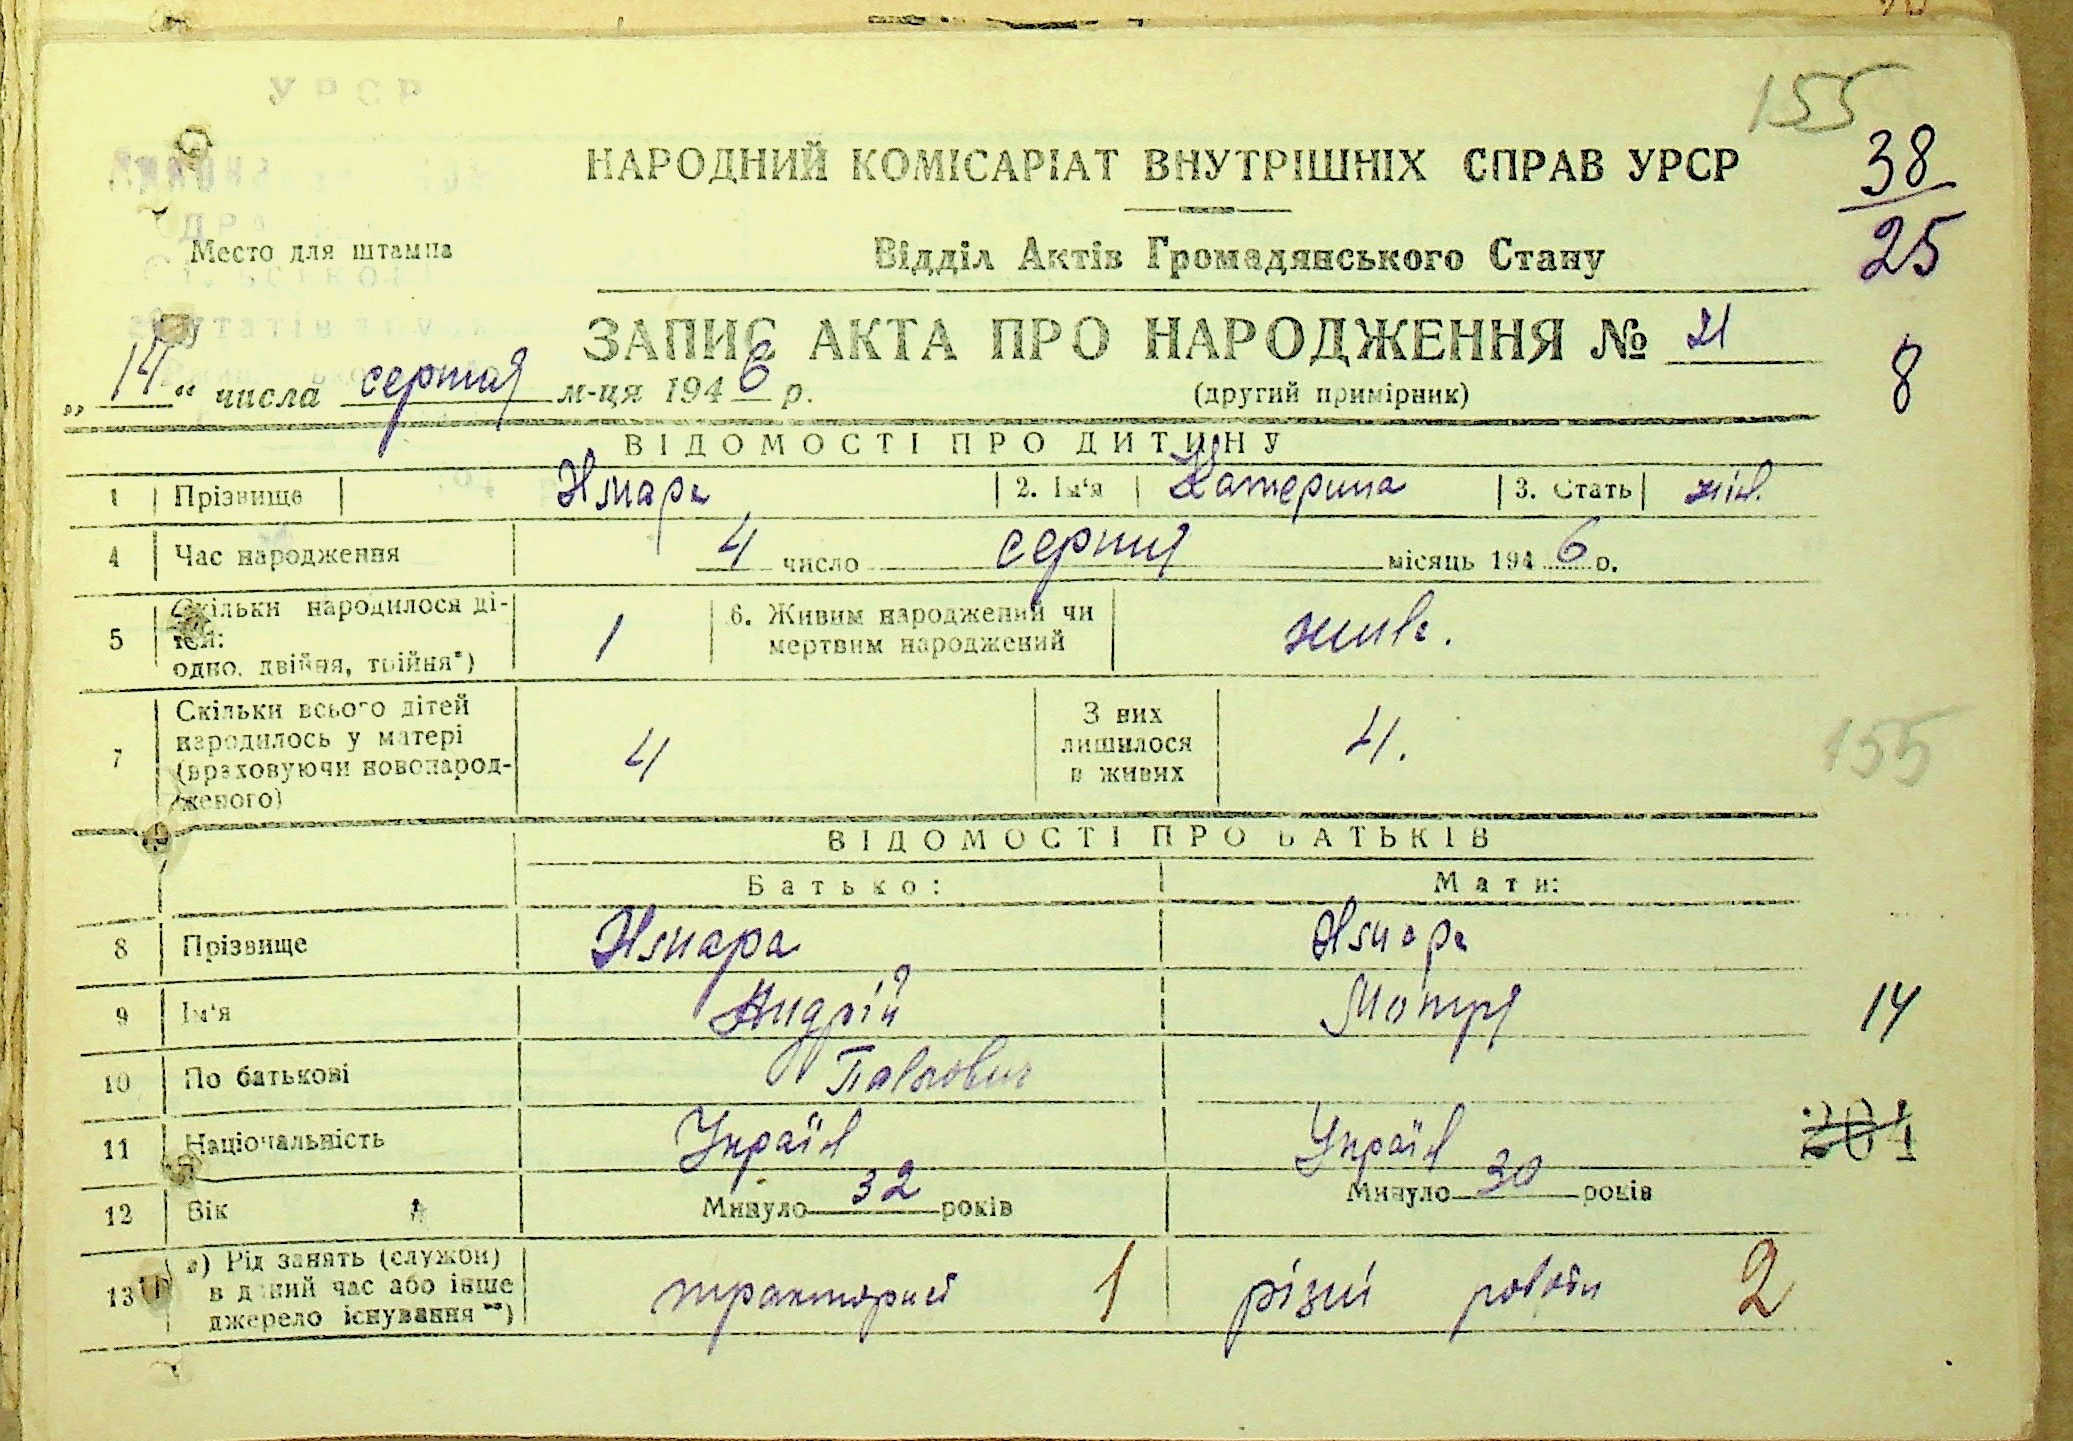 155
38
25
НАРОДНИЙ КОМІСАРІАТ ВНУТРІШНІХ СПРАВ УРСР
Место для штампа
Відділ Актів Громадянського Стану
ЗАПИС АКТА ПРО НАРОДЖЕННЯ № 21
„14" числа серпня м-ця 1946 р.
(другий примірник)
8
ВІДОМОСТІ ПРО ДИТИНУ
1 Прізвище 2. Ім'я Катерина 3. Стать жін.
4 Час народження 4 число серпня місяць 1946 р.
5 Скільки народилося ді-
тей:
одно, двійня, трійня*) 1
6. Живим народжений чи
мертвим народжений жив.
7 Скільки всього дітей
народилось у матері
(враховуючи новонарод-
женого) 4
З них
лишилося
в живих 4.
155
ВІДОМОСТІ ПРО БАТЬКІВ
Батько: Мати:
8 Прізвище
9 Ім'я Андрій Мотря
14
10 По батькові Павлович
11 Національність Україн Україн
201
12 Вік Минуло 32 років Минуло 30 років
13 а) Рід занять (служби)
в даний час або інше
джерело існування **) тракторист 1 різні роботи 2